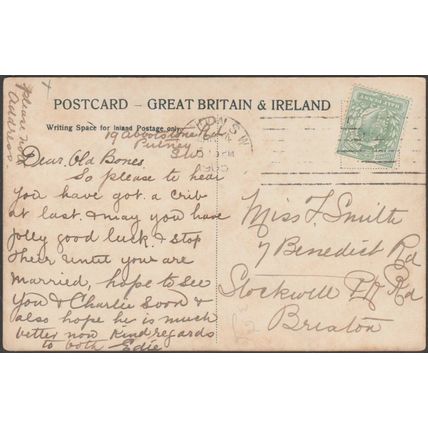 please note
Address.
POSTCARD – GREAT BRITAIN & IRELAND
Writing Space for inland Postage only.
19 Abbotstone Rd
Putney
S.W
Dear Old Bones.
So please to hear
you have got a crib
at last. & may you have
jolly good luck. & stop
their until you are
married, hope to see
you & Charlie soon &
also hope he is much
better now Kind regards
to both Edie
Miss F. Smith
7 Benedict Rd
Stockwell Rd
Brixton